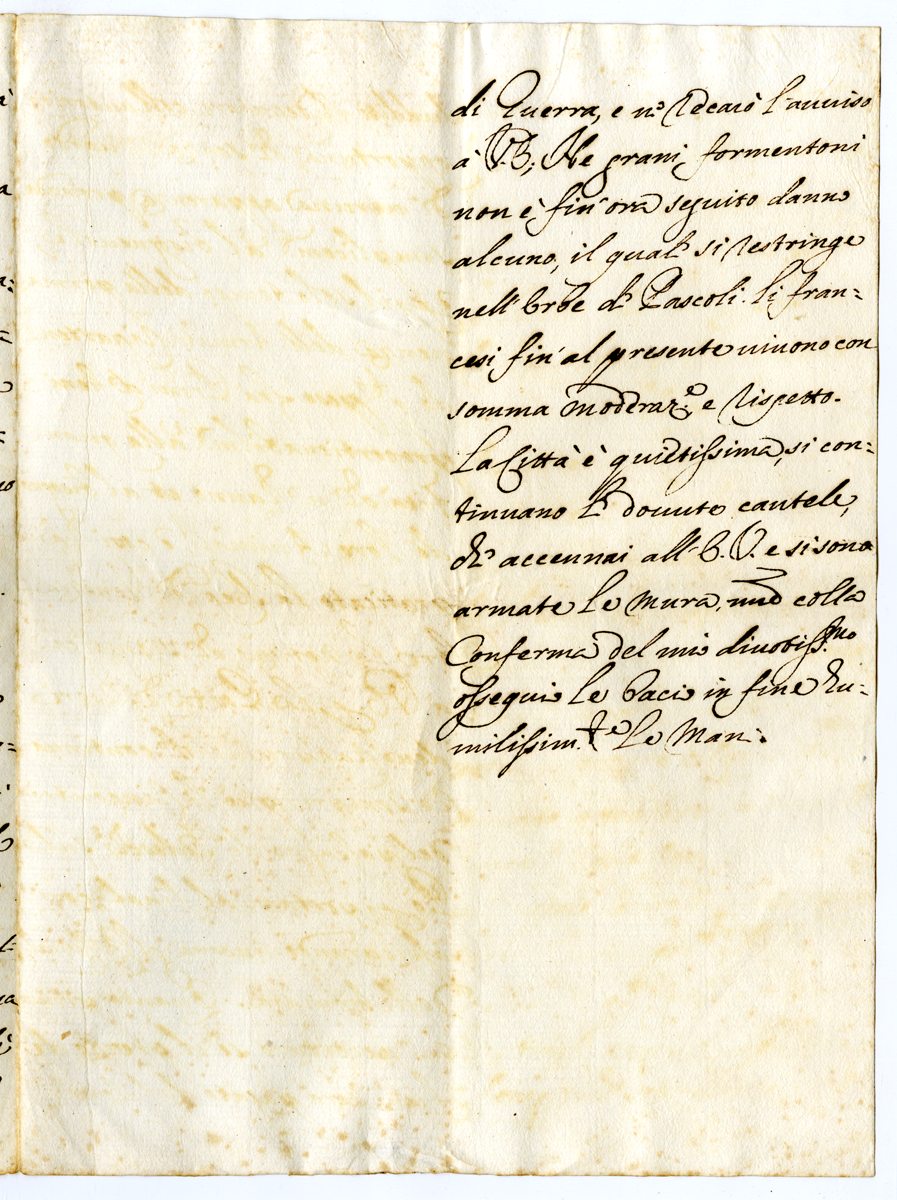 di Guerra, e ne recarò l'auuiso
à V.E; Ne grani, formentoni
non è fin' ora seguito danno
alcuno, il qual' si restringe
nell' Erbe de Pascoli. li fran=
cesi fin' al presente uiuono con
somma moderaz.e, e rispetto.
La Città è quietissima, si con=
tinuano le douute cautele,
che accennai all' E.V. e si sono
armate le mura, colla
Conferma del mio diuotiss.mo
ossequio le bacio in fine hu=
milissim.te le Mani.